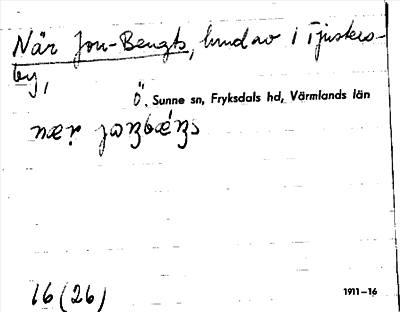 När Jon-Bengts, hmd av i Tjuskers-
by,
Ö. Sunne sn, Fryksdals hd, Värmlands län
16 (26)
1911–16